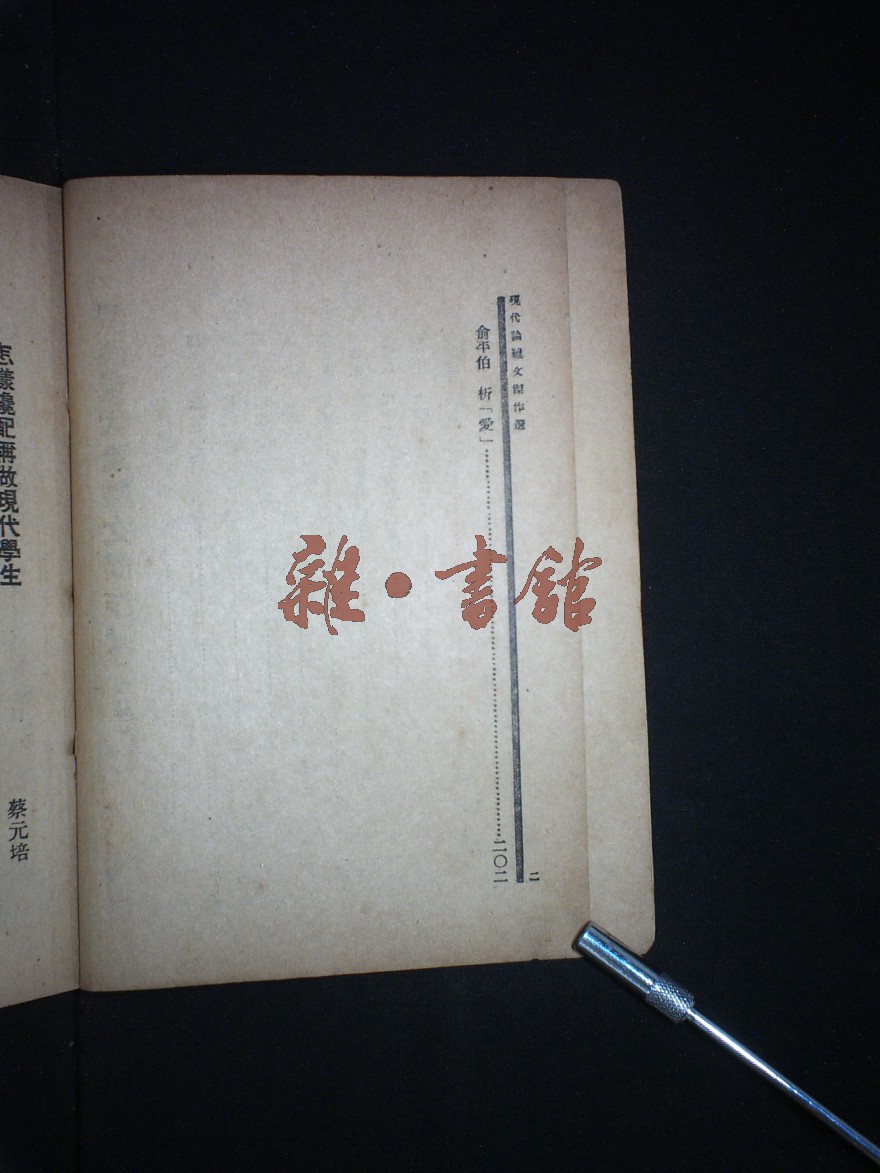 現代論文傑作選
二
俞平伯 析「愛」……二〇二
怎樣纔配稱做現代學生
蔡元培
雜·書館